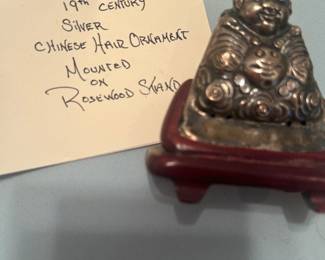 19th CENTURY
SILVER
CHINESE HAIR ORNAMENT
MOUNTED
ON
ROSEWOOD STAND